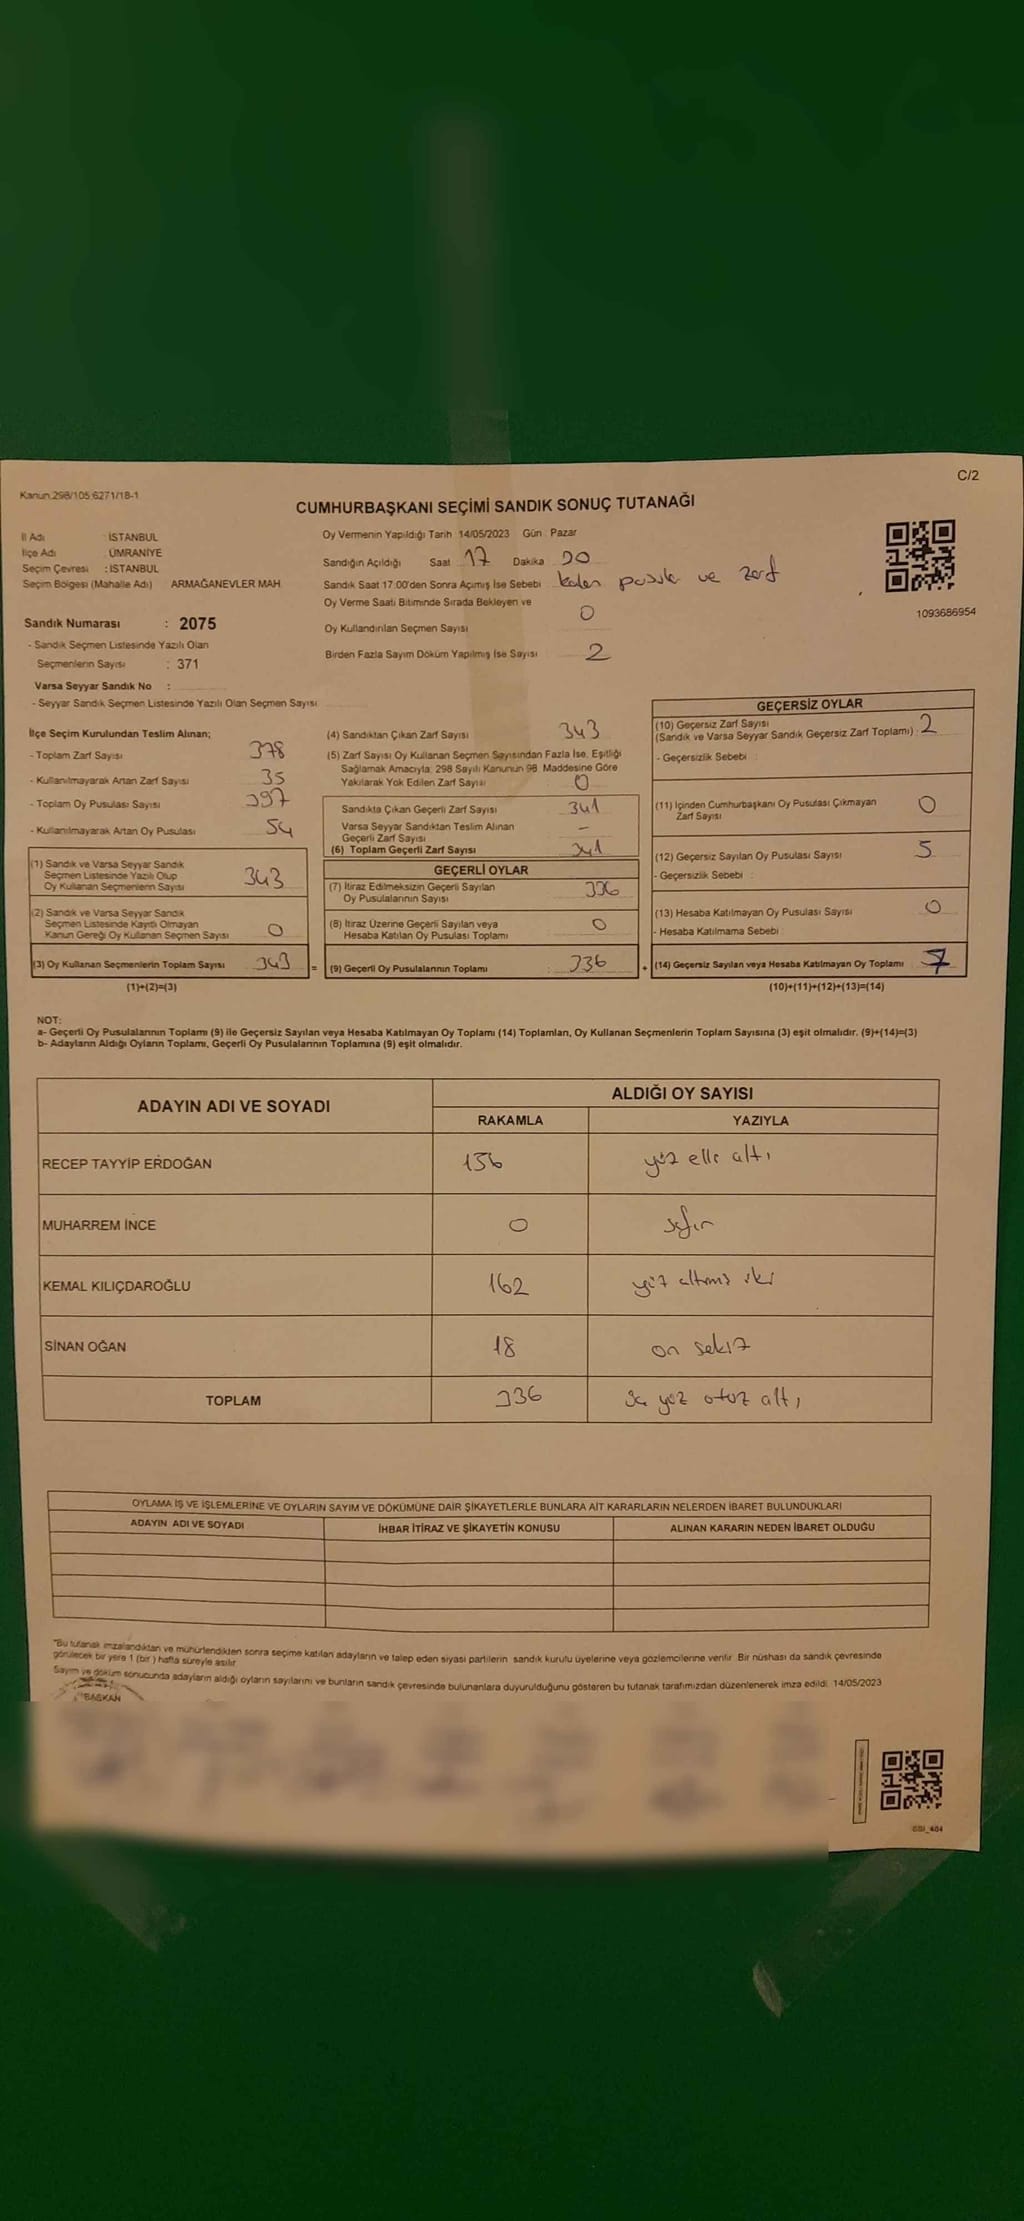 C/2
Kanun.298/105 6271/18-1
CUMHURBAŞKANI SEÇİMİ SANDIK SONUÇ TUTANAĞI
İl Adı : İSTANBUL
İlçe Adı : ÜMRANİYE
Seçim Çevresi : İSTANBUL
Seçim Bölgesi (Mahalle Adı) : ARMAĞANEVLER MAH
Sandık Numarası : 2075
- Sandık Seçmen Listesinde Yazılı Olan
Seçmenlerin Sayısı : 371
Varsa Seyyar Sandık No :
- Seyyar Sandık Seçmen Listesinde Yazılı Olan Seçmen Sayısı
Oy Vermenin Yapıldığı Tarih 14/05/2023 Gün : Pazar
Sandığın Açıldığı Saat 17 Dakika 20
Sandık Saat 17:00'den Sonra Açımış İse Sebebi kalan pusula ve zarf
Oy Verme Saati Bitiminde Sırada Bekleyen ve
Oy Kullandırılan Seçmen Sayısı 0
Birden Fazla Sayım Döküm Yapılmış İse Sayısı 2
1093686954
İlçe Seçim Kurulundan Teslim Alınan;
- Toplam Zarf Sayısı 378
- Kullanılmayarak Artan Zarf Sayısı 35
- Toplam Oy Pusulası Sayısı 397
- Kullanılmayarak Artan Oy Pusulası 54
(1) Sandık ve Varsa Seyyar Sandık
Seçmen Listesinde Yazılı Olup
Oy Kullanan Seçmenlerin Sayısı 343
(2) Sandık ve Varsa Seyyar Sandık
Seçmen Listesinde Kayıtlı Olmayan
Kanun Gereği Oy Kullanan Seçmen Sayısı 0
(3) Oy Kullanan Seçmenlerin Toplam Sayısı 343
(1)+(2)=(3)
(4) Sandıktan Çıkan Zarf Sayısı 343
(5) Zarf Sayısı Oy Kullanan Seçmen Sayısından Fazla İse, Eşitliği
Sağlamak Amacıyla; 298 Sayılı Kanunun 98. Maddesine Göre
Yakılarak Yok Edilen Zarf Sayısı 0
Sandıkta Çıkan Geçerli Zarf Sayısı 341
Varsa Seyyar Sandıktan Teslim Alınan
Geçerli Zarf Sayısı -
(6) Toplam Geçerli Zarf Sayısı 341
GEÇERLİ OYLAR
(7) İtiraz Edilmeksizin Geçerli Sayılan
Oy Pusulalarının Sayısı 336
(8) İtiraz Üzerine Geçerli Sayılan veya
Hesaba Katılan Oy Pusulası Toplamı 0
= (9) Geçerli Oy Pusulalarının Toplamı : 336 +
GEÇERSİZ OYLAR
(10) Geçersiz Zarf Sayısı
(Sandık ve Varsa Seyyar Sandık Geçersiz Zarf Toplamı) : 2
- Geçersizlik Sebebi :
(11) İçinden Cumhurbaşkanı Oy Pusulası Çıkmayan
Zarf Sayısı 0
(12) Geçersiz Sayılan Oy Pusulası Sayısı 5
- Geçersizlik Sebebi :
(13) Hesaba Katılmayan Oy Pusulası Sayısı 0
- Hesaba Katılmama Sebebi :
(14) Geçersiz Sayılan veya Hesaba Katılmayan Oy Toplamı : 7
(10)+(11)+(12)+(13)=(14)
NOT:
a- Geçerli Oy Pusulalarının Toplamı (9) ile Geçersiz Sayılan veya Hesaba Katılmayan Oy Toplamı (14) Toplamları, Oy Kullanan Seçmenlerin Toplam Sayısına (3) eşit olmalıdır. (9)+(14)=(3)
b- Adayların Aldığı Oyların Toplamı, Geçerli Oy Pusulalarının Toplamına (9) eşit olmalıdır.
ADAYIN ADI VE SOYADI
ALDIĞI OY SAYISI
RAKAMLA YAZIYLA
RECEP TAYYİP ERDOĞAN 156 yüz elli altı
MUHARREM İNCE 0 sıfır
KEMAL KILIÇDAROĞLU 162 yüz altmış iki
SİNAN OĞAN 18 on sekiz
TOPLAM 336 üç yüz otuz altı
OYLAMA İŞ VE İŞLEMLERİNE VE OYLARIN SAYIM VE DÖKÜMÜNE DAİR ŞİKAYETLERLE BUNLARA AİT KARARLARIN NELERDEN İBARET BULUNDUKLARI
ADAYIN ADI VE SOYADI İHBAR İTİRAZ VE ŞİKAYETİN KONUSU ALINAN KARARIN NEDEN İBARET OLDUĞU
"Bu tutanak imzalandıktan ve mühürlendikten sonra seçime katılan adayların ve talep eden siyasi partilerin sandık kurulu üyelerine veya gözlemcilerine verilir. Bir nüshası da sandık çevresinde
görülecek bir yere 1 (bir ) hafta süreyle asılır.
Sayım ve döküm sonucunda adayların aldığı oyların sayılarını ve bunların sandık çevresinde bulunanlara duyurulduğunu gösteren bu tutanak tarafımızdan düzenlenerek imza edildi. 14/05/2023
BAŞKAN